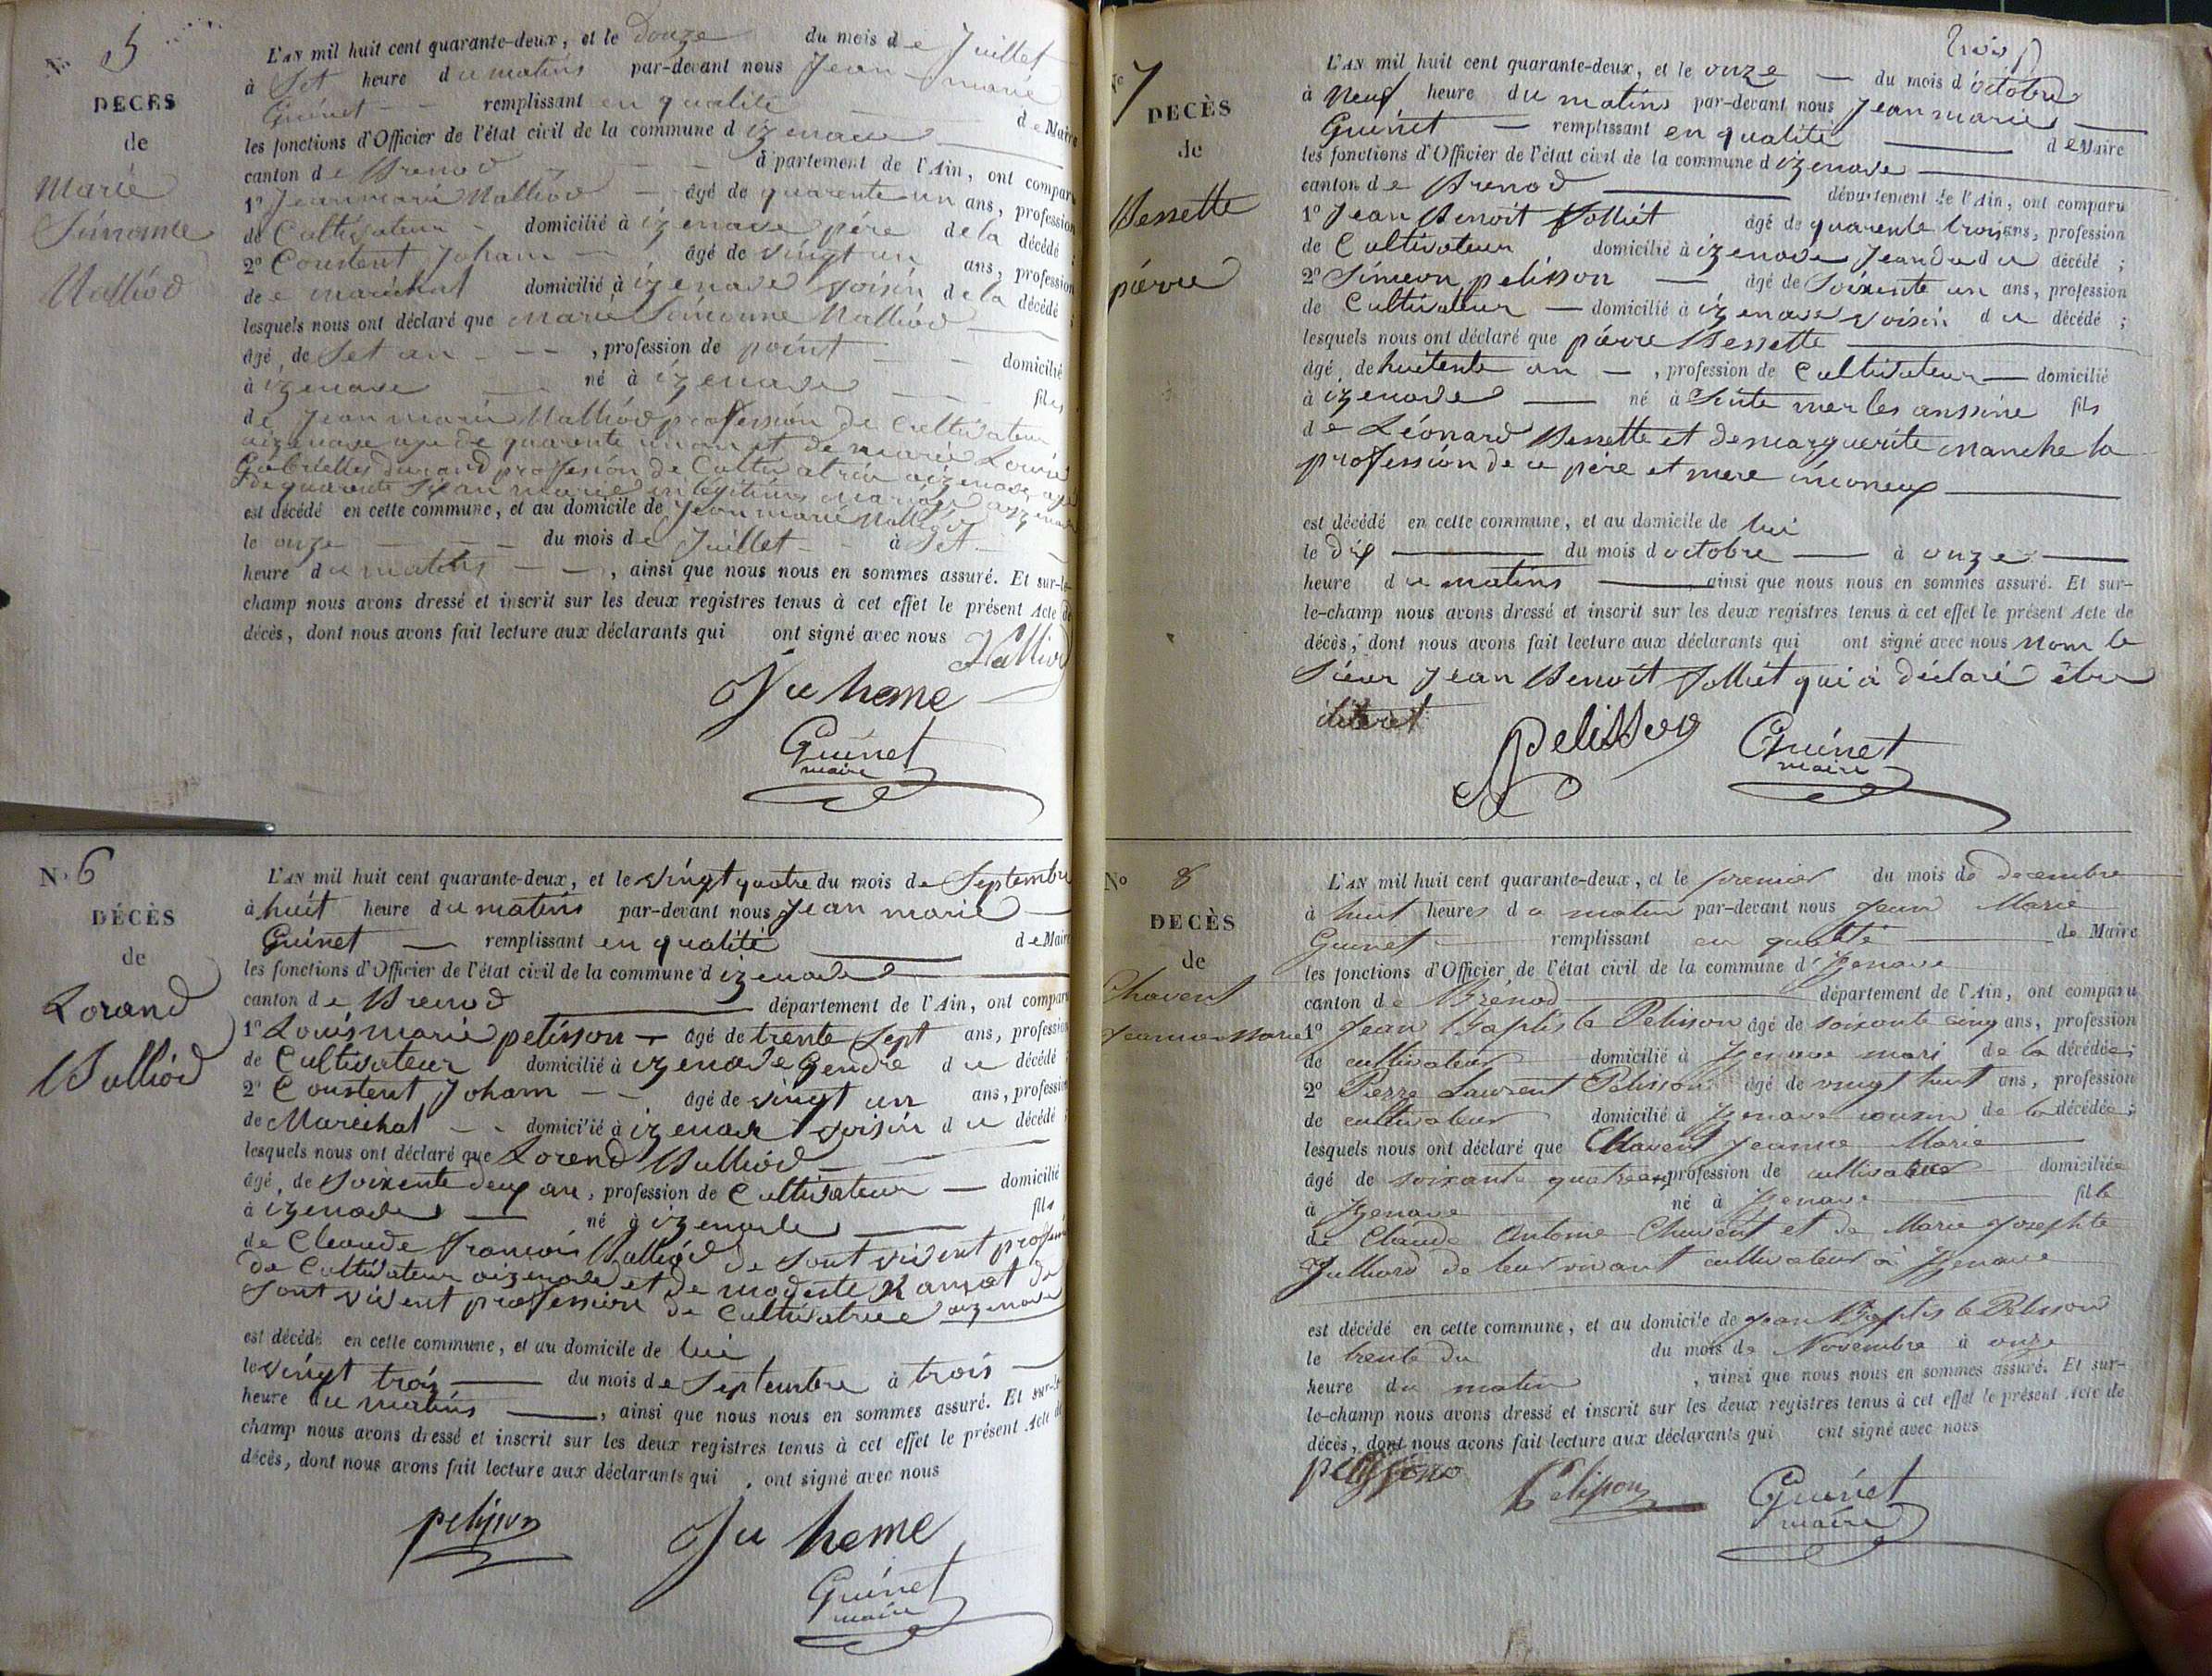 N. 5
DÉCÈS
de
Marie
Simonne
Nalliod
L'AN mil huit cent quarante-deux, et le douze du mois de Juillet
à Set heure du matins par-devant nous Jean marie
Guinet remplissant en qualité de Maire
les fonctions d'Officier de l'état civil de la commune d izenave
canton de Brenod département de l'Ain, ont comparu
1° Jeanmarie Nalliod âgé de quarente un ans, profession
de Cultivateur domicilié à izenave père de la décédé ;
2° Constent Joham âgé de vingt un ans, profession
de maréchal domicilié à izenave voisin de la décédé ;
lesquels nous ont déclaré que Marie Simonne Nalliod
âgé de Set an , profession de point domicilié
à izenave né à izenave fils
de Jean marie Nalliod profession de Cultivateur
aizenave age de quarente un an et de marie Louise
Gabrielles durand profession de Cultivatrice aizenave agé
de quarente an marié en légitime mariage aizenave
est décédé en cette commune, et au domicile de Jean marie Nalliod
le onze du mois de Juillet à Set
heure du matins , ainsi que nous nous en sommes assuré. Et sur-le-
champ nous avons dressé et inscrit sur les deux registres tenus à cet effet le présent Acte de
décès, dont nous avons fait lecture aux déclarants qui ont signé avec nous
Nalliod
Ju heme
Guinet
maire
N. 6
DÉCÈS
de
Lorand
Balliod
L'AN mil huit cent quarante-deux, et le vingt quatre du mois de Septembre
à huit heure du matins par-devant nous Jean marie
Guinet remplissant en qualité de Maire
les fonctions d'Officier de l'état civil de la commune d izenave
canton de Brenod département de l'Ain, ont comparu
1° Louis marie pelisson âgé de trente Sept ans, profession
de Cultivateur domicilié à izenave Gendre du décédé ;
2° Constent Joham âgé de vingt un ans, profession
de Maréchal domicilié à izenave voisin du décédé ;
lesquels nous ont déclaré que Lorend Balliod
âgé de Soixente deux an, profession de Cultivateur domicilié
à izenave né à izenave fils
de Cleaude francois Balliod de Sont vivent profession
de Cultivateur aizenave et de modeste de
Sont vivent profession de Cultivatrice aizenave
est décédé en cette commune, et au domicile de lui
le vingt trois du mois de Septembre à trois
heure du matins , ainsi que nous nous en sommes assuré. Et sur-le-
champ nous avons dressé et inscrit sur les deux registres tenus à cet effet le présent Acte de
décès, dont nous avons fait lecture aux déclarants qui ont signé avec nous
pelisson
Ju heme
Guinet
maire
trois
N° 7
DECÈS
de
Bessette
pierre
L'AN mil huit cent quarante-deux, et le onze du mois d'octobre
à Neuf heure du matins par-devant nous Jean marie
Guinet remplissant en qualité de Maire
les fonctions d'Officier de l'état civil de la commune d izenave
canton de Brenod département de l'Ain, ont comparu
1° Jean Benoit Jolliet âgé de quarente trois ans, profession
de Cultivateur domicilié à izenave Jeandu du décédé ;
2° Simeon pelisson âgé de Soixente un ans, profession
de Cultivateur domicilié à izenave voisin du décédé ;
lesquels nous ont déclaré que pierre Bessette
âgé de huitente an , profession de Cultivateur domicilié
à izenave né à Sinte mer les anssine fils
de Léonard Bessette et demarguerite manche la
profession de ce père et mere inconeux
est décédé en cette commune, et au domicile de lui
le dix du mois d octobre à onze
heure du matins ainsi que nous nous en sommes assuré. Et sur-
le-champ nous avons dressé et inscrit sur les deux registres tenus à cet effet le présent Acte de
décès, dont nous avons fait lecture aux déclarants qui ont signé avec nous Nom le
Sieur Jean Benoit Jolliet qui à déclaré être
Pelisson
Guinet
maire
N° 8
DECÈS
de
Chavent
Jeanne Marie
L'AN mil huit cent quarante-deux, et le premier du mois de decembre
à huit heures du matin par-devant nous Jean Marie
Guinet remplissant en qualité de Maire
les fonctions d'Officier de l'état civil de la commune d'Izenave
canton de Brénod département de l'Ain, ont comparu
1° Jean Baptiste Pelisson âgé de soixante cinq ans, profession
de cultivateur domicilié à Izenave mari de la décédée ;
2° Pierre Laurent Pelisson âgé de vingt huit ans, profession
de cultivateur domicilié à Izenave cousin de la décédée ;
lesquels nous ont déclaré que Chavent Jeanne Marie
âgé de soixante quatre ans, profession de cultivateur domiciliée
à Izenave né à Izenave fille
de Claude Antoine Chavent et de Marie Josephte
Julliard de leur vivant cultivateur à Izenave
est décédé en cette commune, et au domicile de Jean Baptiste Pelisson
le trente du du mois de Novembre à onze
heure du matin , ainsi que nous nous en sommes assuré. Et sur-
le-champ nous avons dressé et inscrit sur les deux registres tenus à cet effet le présent Acte de
décès, dont nous avons fait lecture aux déclarants qui ont signé avec nous
Pelisson
Guinet
maire